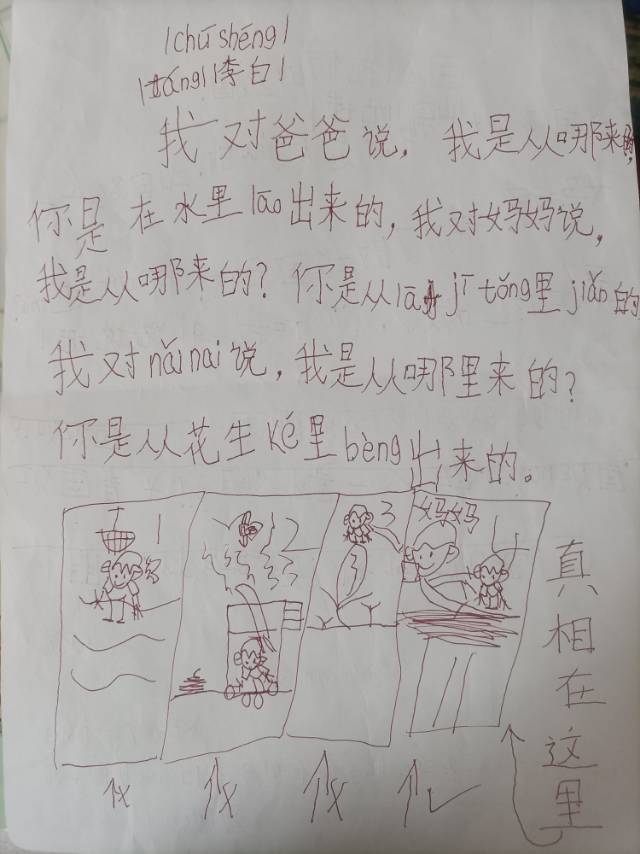 chū shēng
táng 李白
我对爸爸说,我是从哪来的,
你是在水里lāo出来的,我对妈妈说,
我是从哪来的?你是从lā jī tǒng里jiǎn的
我对nǎinai说,我是从哪里来的?
你是从花生ké里bèng出来的。
1
2
3
妈妈
4
真相在这里